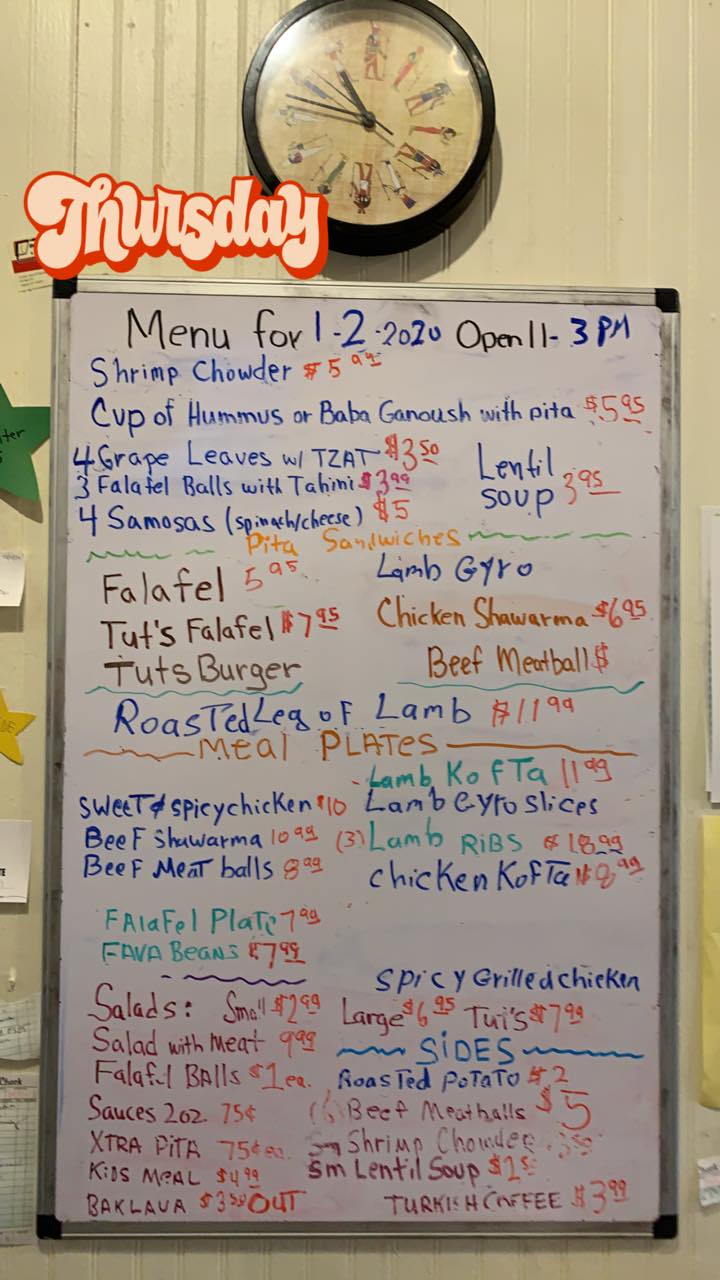 Thursday
Menu for 1-2-2020 Open 11-3 PM
Shrimp Chowder $5 99
Cup of Hummus or Baba Ganoush with pita $5 95
4 Grape Leaves w/ TZAT $3 50
3 Falafel Balls with Tahini $3 99
4 Samosas (spinach/cheese) $5
Lentil
soup 3 95
Pita Sandwiches
Falafel 5 95
Lamb Gyro
Tut's Falafel $7 95
Chicken Shawarma $6 95
Tuts Burger
Beef Meatball $
Roasted Leg of Lamb $11 99
Meal PLATES
Lamb KofTa 11 99
SweeT & spicy chicken $10
Lamb Gyro slices
BeeF Shawarma 10 99
(3) Lamb RiBS $18.99
BeeF MeaT balls 8 99
chicken KofTa $8 99
FAlaFel PlaTe 7 99
FAVA BeanS $7 99
Spicy Grilled chicken
Salads: Small $2 99 Large $6 95 Tut's $7 99
Salad with meat 9 99
SiDES
Falafel BAlls $1 ea.
RoasTed PoTaTo $2
Sauces 2oz. 75¢
Beef Meatballs $5
XTRA PiTA 75¢ ea.
Shrimp Chowder
KiDS MeAL $4 99
Sm Lentil Soup
BAKLAVA $3 50 OUT
TURKISH COFFEE $3 99